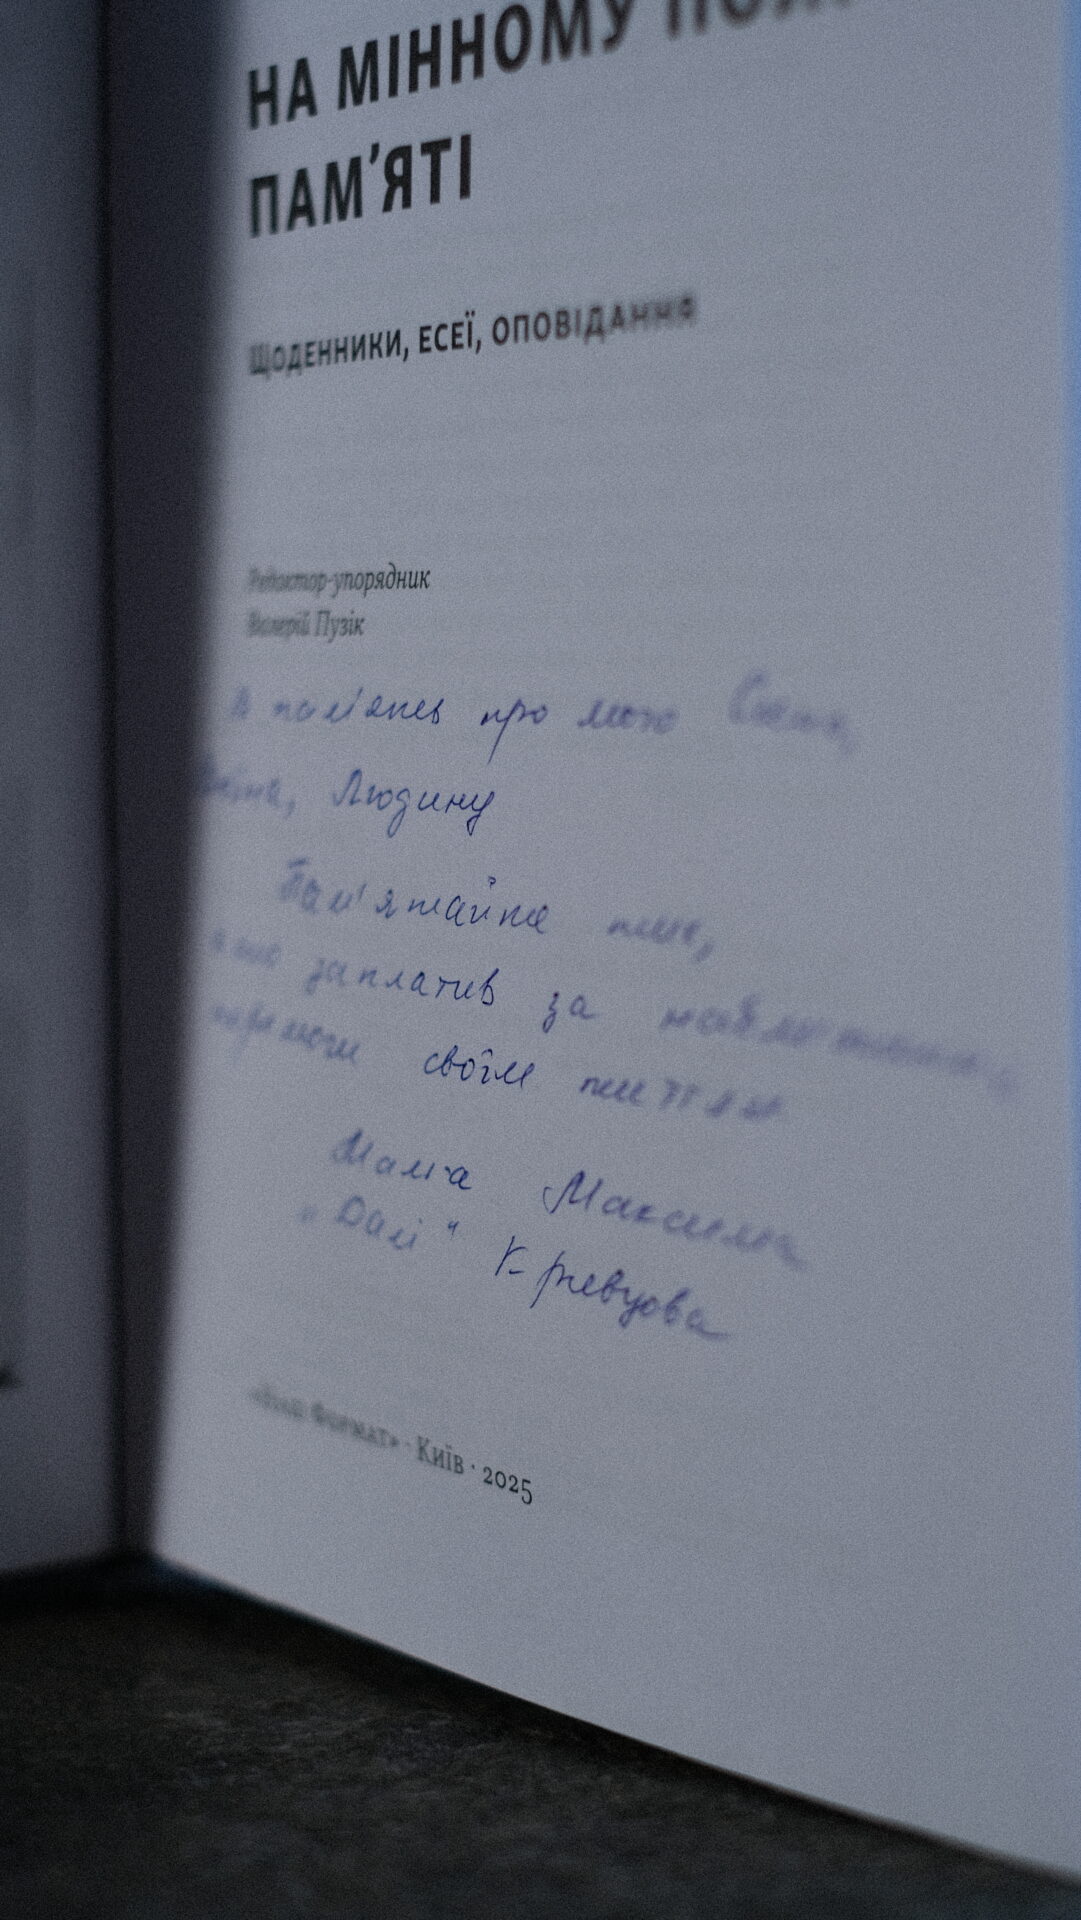 НА МІННОМУ ПОЛІ
ПАМ’ЯТІ
ЩОДЕННИКИ, ЕСЕЇ, ОПОВІДАННЯ
Редактор-упорядник
Валерій Пузік
В пам'ять про мого Сина,
Воїна, Людину
Пам'ятайте тих,
хто заплатив за
перемоги своїм життям
Мама Максима
"Далі" Кривцова
«Наш Формат» · Київ · 2025